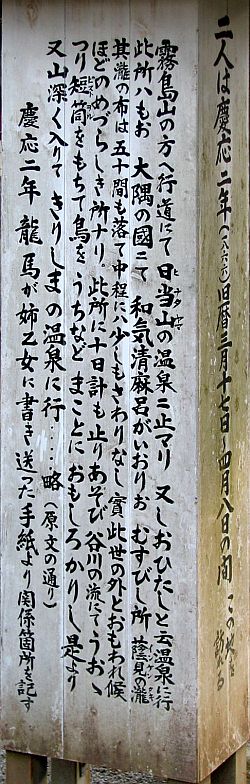 二人は慶応二年(一八六六)旧暦三月十七日~四月八日の間 この地を訪れる
霧島山の方へ行道にて 日当山の温泉ニ止マリ 又しおひたしと云温泉に行
此所ハもお 大隅の國ニて 和気清麻呂がいおりお むすびし所 蔭見の瀧
其瀧の布は五十間も落て中程ニハ少しもさわりなし 實此世の外とおもわれ候
ほどのめづらしき所ナリ 此所に十日計も止りあそび 谷川の流にてうおゝ
つり 短筒をもちて鳥をうちなど まことにおもしろかりし 是より
又山深く入りて きりしまの温泉に行‥‥略(原文の通り)
慶応二年 龍馬が姉乙女に書き送った手紙より 関係箇所を記す
ヒナタヤマ
インケンタキ
ピストヲル